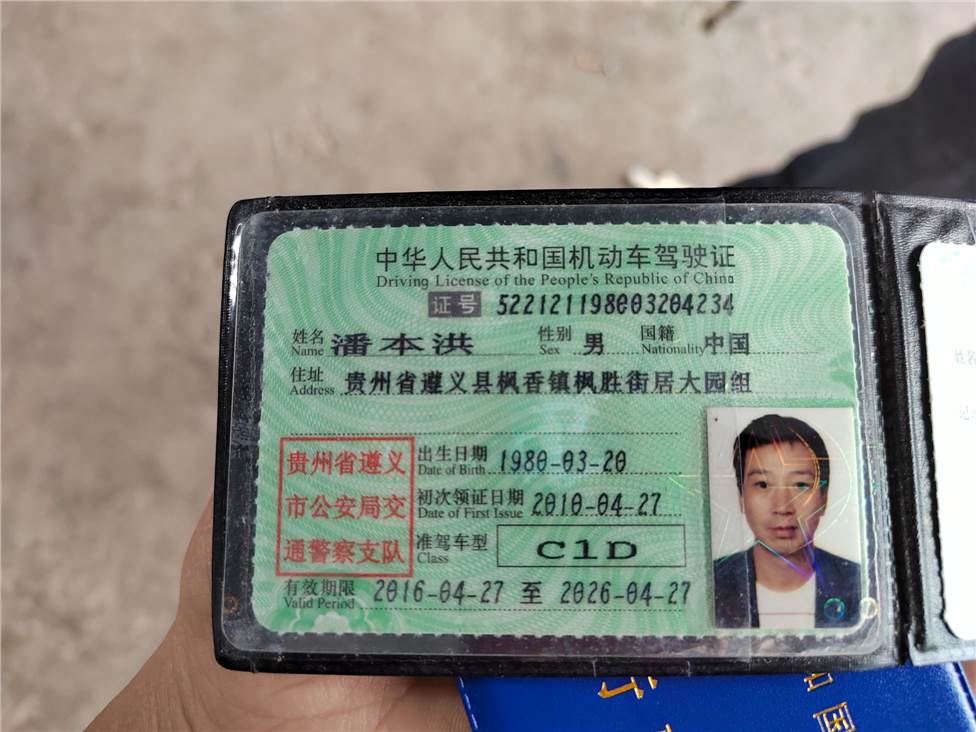 中华人民共和国机动车驾驶证
Driving License of the People's Republic of China
证号 522121198003204234
姓名 潘本洪 性别 男 国籍 中国
Name Sex Nationality
住址 贵州省遵义县枫香镇枫胜街居大园组
Address
贵州省遵义
市公安局交
通警察支队
出生日期 1980-03-20
Date of Birth
初次领证日期 2010-04-27
Date of First Issue
准驾车型 C1D
Class
有效期限 2016-04-27 至 2026-04-27
Valid Period
姓名
记
行
中国